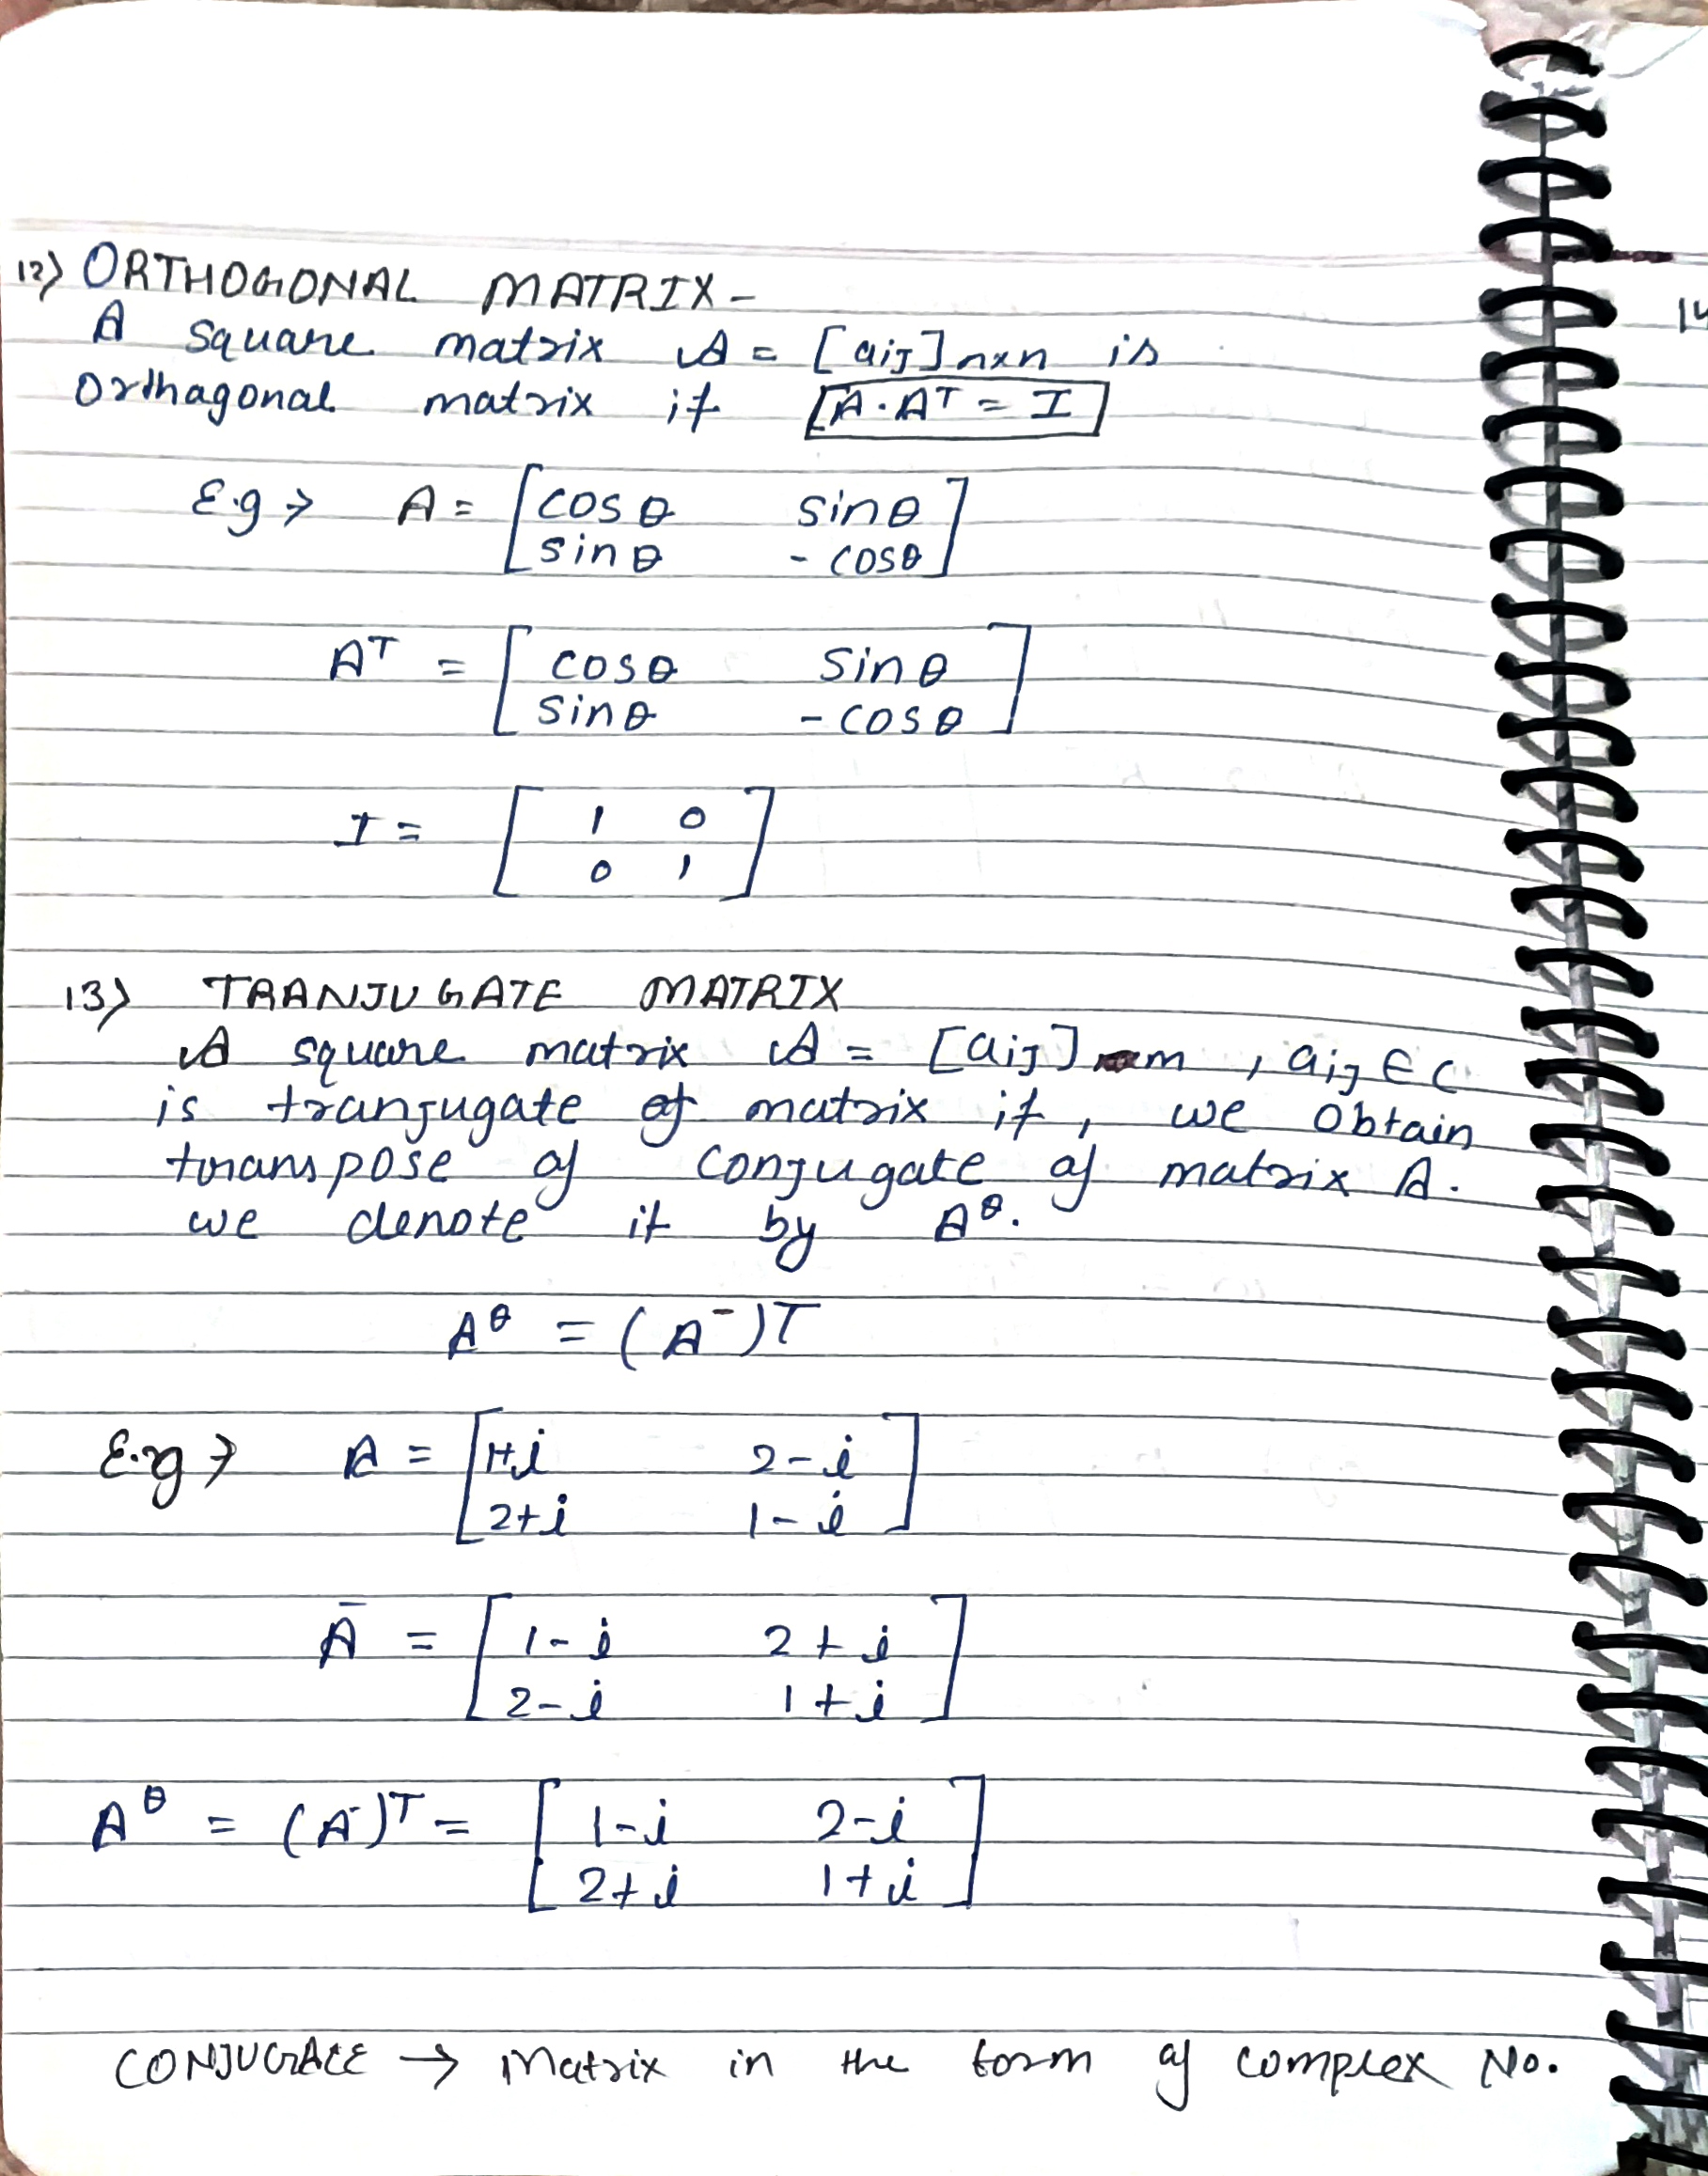 12) ORTHOGONAL MATRIX -
A square matrix A = [aij]nxn is
Orthagonal matrix if [A·Aᵀ = I]
E.g → A = [cosθ sinθ
sinθ - cosθ]
Aᵀ = [cosθ sinθ
sinθ - cosθ]
I = [1 0
0 1]
13) TRANJUGATE MATRIX
A square matrix A = [aij] m , aij ∈ C
is tranjugate of matrix if, we obtain
transpose of conjugate of matrix A.
we denote it by Aᶿ.
Aᶿ = (A⁻)T
E.g → A = [1+i 2-i
2+i 1-i]
Ā = [1-i 2+i
2-i 1+i]
Aᶿ = (A⁻)ᵀ = [1-i 2-i
2+i 1+i]
CONJUGATE → Matrix in the form of complex No.
14